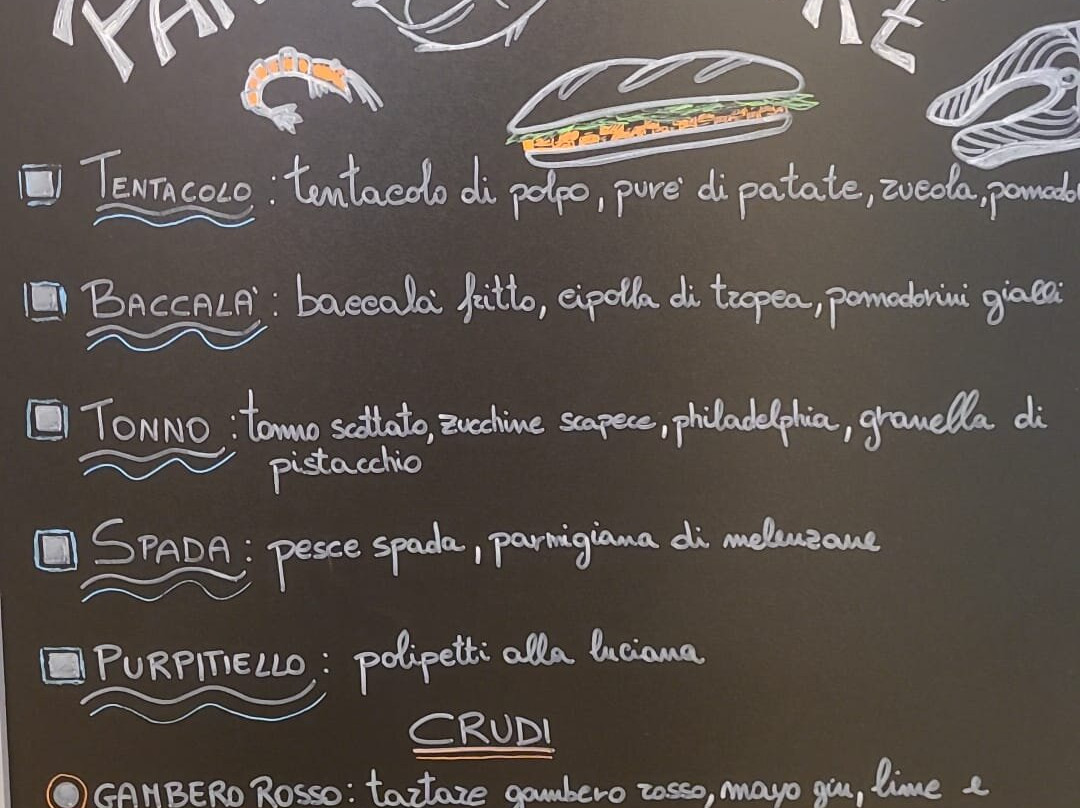 TENTACOLO: tentacolo di polpo, purè di patate, rucola, pomodo
BACCALA': baccalà fritto, cipolla di tropea, pomodorini gialli
TONNO: tonno scottato, zucchine scapece, philadelphia, granella di
pistacchio
SPADA: pesce spada, parmigiana di melenzane
PURPITIELLO: polipetti alla luciana
CRUDI
GAMBERO ROSSO: tartare gambero rosso, mayo gin, lime e